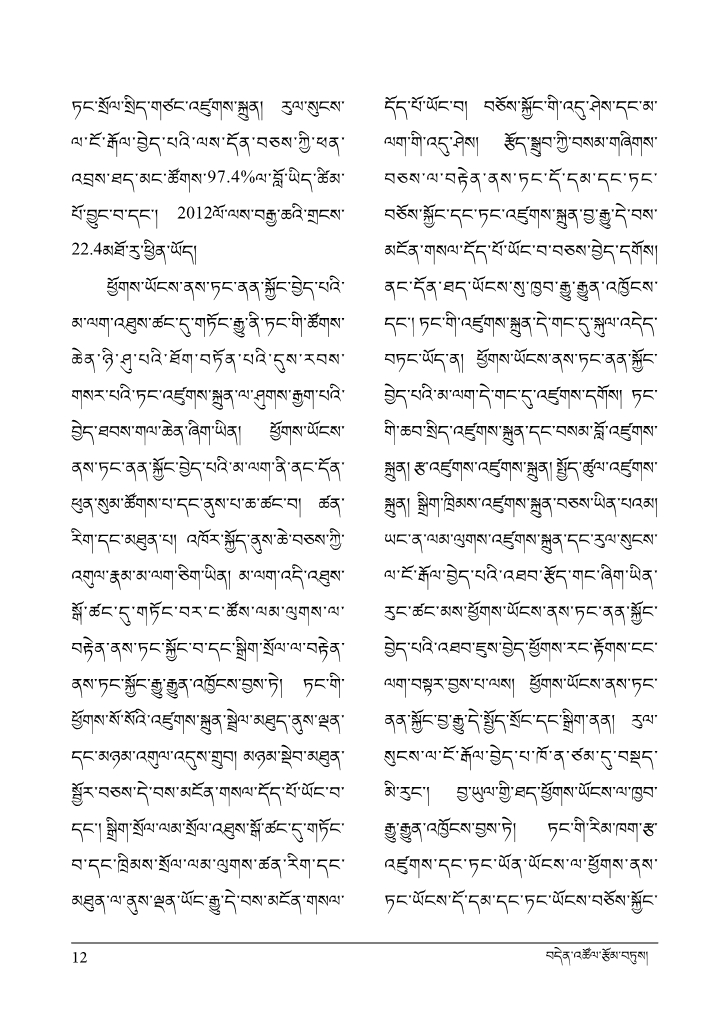 ཏང་སྲོལ་སྲིད་གཙང་འཛུགས་སྐྲུན། རུལ་སུངས་
ལ་ངོ་རྒོལ་བྱེད་པའི་ལས་དོན་བཅས་ཀྱི་ཕན་
འབྲས་ཐད་མང་ཚོགས་97.4%ལ་བློ་ཡིད་ཚིམ་
པོ་བྱུང་བ་དང་། 2012ལོ་ལས་བརྒྱ་ཆའི་གྲངས་
22.4མཐོ་རུ་ཕྱིན་ཡོད།
ཕྱོགས་ཡོངས་ནས་ཏང་ནན་སྐྱོང་བྱེད་པའི་
མ་ལག་འཐུས་ཚང་དུ་གཏོང་རྒྱུ་ནི་ཏང་གི་ཚོགས་
ཆེན་ཉི་ཤུ་པའི་ཐོག་བཏོན་པའི་དུས་རབས་
གསར་པའི་ཏང་འཛུགས་སྐྲུན་ལ་ཤུགས་རྒྱག་པའི་
བྱེད་ཐབས་གལ་ཆེན་ཞིག་ཡིན། ཕྱོགས་ཡོངས་
ནས་ཏང་ནན་སྐྱོང་བྱེད་པའི་མ་ལག་ནི་ནང་དོན་
ཕུན་སུམ་ཚོགས་པ་དང་ནུས་པ་ཆ་ཚང་བ། ཚན་
རིག་དང་མཐུན་པ། འཁོར་སྐྱོད་ནུས་ཆེ་བཅས་ཀྱི་
འགུལ་རྣམ་མ་ལག་ཅིག་ཡིན། མ་ལག་འདི་འཐུས་
སྒོ་ཚང་དུ་གཏོང་བར་ང་ཚོས་ལམ་ལུགས་ལ་
བརྟེན་ནས་ཏང་སྐྱོང་བ་དང་སྒྲིག་སྲོལ་ལ་བརྟེན་
ནས་ཏང་སྐྱོང་རྒྱུ་རྒྱུན་འཁྱོངས་བྱས་ཏེ། ཏང་གི་
ཕྱོགས་སོ་སོའི་འཛུགས་སྐྲུན་སྦྲེལ་མཐུད་ནུས་ལྡན་
དང་མཉམ་འགུལ་འདུས་གྲུབ། མཉམ་སྡེབ་མཐུན་
སྦྱོར་བཅས་དེ་བས་མངོན་གསལ་དོད་པོ་ཡོང་བ་
དང་། སྒྲིག་སྲོལ་ལམ་སྲོལ་འཐུས་སྒོ་ཚང་དུ་གཏོང་
བ་དང་ཁྲིམས་སྲོལ་ལམ་ལུགས་ཚན་རིག་དང་
མཐུན་ལ་ནུས་ལྡན་ཡོང་རྒྱུ་དེ་བས་མངོན་གསལ་
དོད་པོ་ཡོང་བ། བཅོས་སྐྱོང་གི་འདུ་ཤེས་དང་མ་
ལག་གི་འདུ་ཤེས། རྩོད་སྒྲུབ་ཀྱི་བསམ་གཞིགས་
བཅས་ལ་བརྟེན་ནས་ཏང་དོ་དམ་དང་ཏང་
བཅོས་སྐྱོང་དང་ཏང་འཛུགས་སྐྲུན་བྱ་རྒྱུ་དེ་བས་
མངོན་གསལ་དོད་པོ་ཡོང་བ་བཅས་བྱེད་དགོས།
ནང་དོན་ཐད་ཡོངས་སུ་ཁྱབ་རྒྱུ་རྒྱུན་འཁྱོངས་
དང་། ཏང་གི་འཛུགས་སྐྲུན་དེ་གང་དུ་སྐུལ་འདེད་
བཏང་ཡོད་ན། ཕྱོགས་ཡོངས་ནས་ཏང་ནན་སྐྱོང་
བྱེད་པའི་མ་ལག་དེ་གང་དུ་འཛུགས་དགོས། ཏང་
གི་ཆབ་སྲིད་འཛུགས་སྐྲུན་དང་བསམ་བློ་འཛུགས་
སྐྲུན། རྩ་འཛུགས་འཛུགས་སྐྲུན། སྤྱོད་ཚུལ་འཛུགས་
སྐྲུན། སྒྲིག་ཁྲིམས་འཛུགས་སྐྲུན་བཅས་ཡིན་པའམ།
ཡང་ན་ལམ་ལུགས་འཛུགས་སྐྲུན་དང་རུལ་སུངས་
ལ་ངོ་རྒོལ་བྱེད་པའི་འཐབ་རྩོད་གང་ཞིག་ཡིན་
རུང་ཚང་མས་ཕྱོགས་ཡོངས་ནས་ཏང་ནན་སྐྱོང་
བྱེད་པའི་འཐབ་ཇུས་བྱེད་ཕྱོགས་རང་རྟོགས་ངང་
ལག་བསྟར་བྱས་པ་ལས། ཕྱོགས་ཡོངས་ནས་ཏང་
ནན་སྐྱོང་བྱ་རྒྱུ་དེ་སྤྱོད་སྲོང་དང་སྒྲིག་ནན། རུལ་
སུངས་ལ་ངོ་རྒོལ་བྱེད་པ་ཁོ་ན་ཙམ་དུ་བསྡད་
མི་རུང་། བྱ་ཡུལ་གྱི་ཐད་ཕྱོགས་ཡོངས་ལ་ཁྱབ་
རྒྱུ་རྒྱུན་འཁྱོངས་བྱས་ཏེ། ཏང་གི་རིམ་ཁག་རྩ་
འཛུགས་དང་ཏང་ཡོན་ཡོངས་ལ་ཕྱོགས་ནས་
ཏང་ཡོངས་དོ་དམ་དང་ཏང་ཡོངས་བཅོས་སྐྱོང་
12
བདེན་འཚོལ་རྩོམ་བཏུས།